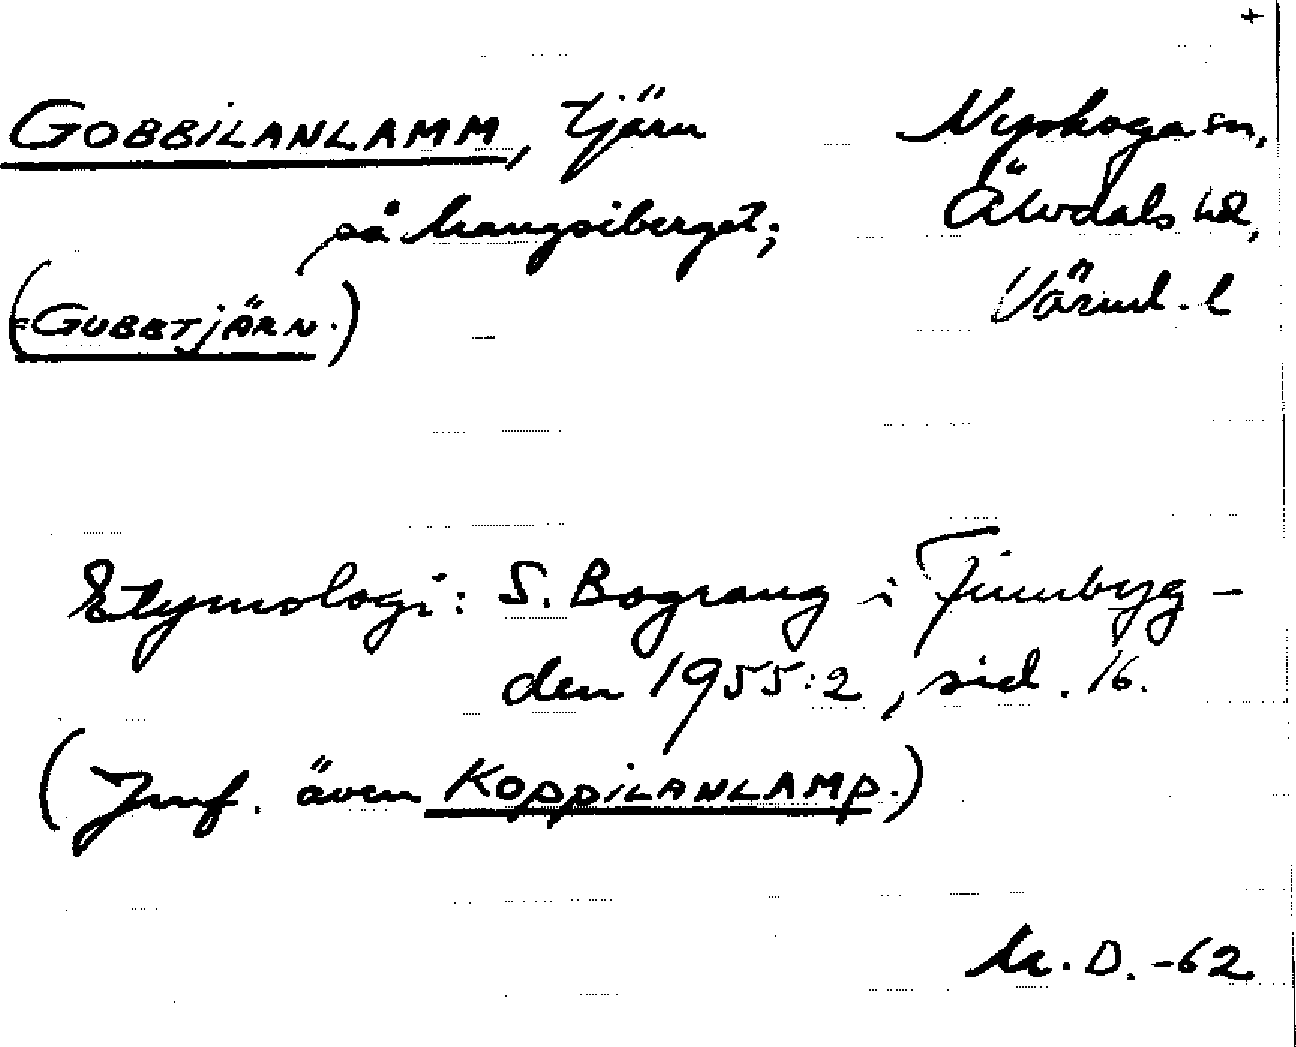 +
GOBBILANLAMM, tjärn
på Mangsiberget;
(=GUBBTJÄRN.)
Nyskoga sn,
Älvdals hd,
Värml. l
Etymologi: S. Bograng i Finnbyg-
den 1955:2, sid. 16.
(Jmf. även KOPPILANLAMP.)
M. D. -62